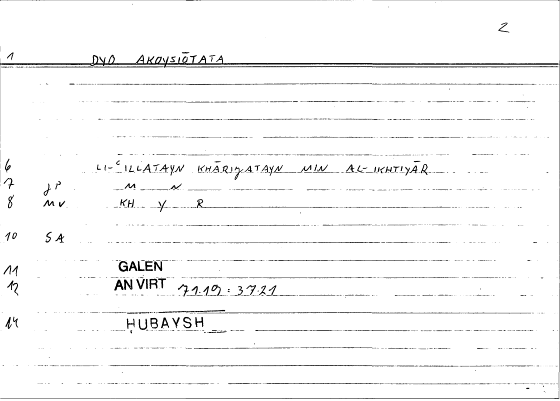 2
1 DYO AKOYSIŌTATA
6 LI-ʿILLATAYN KHĀRIGATAYN MIN AL-IKHTIYĀR
7 JP M N
8 MV KH Y R
10 SA
11 GALEN
12 AN VIRT 71.19 : 37.21
14 ḤUBAYSH